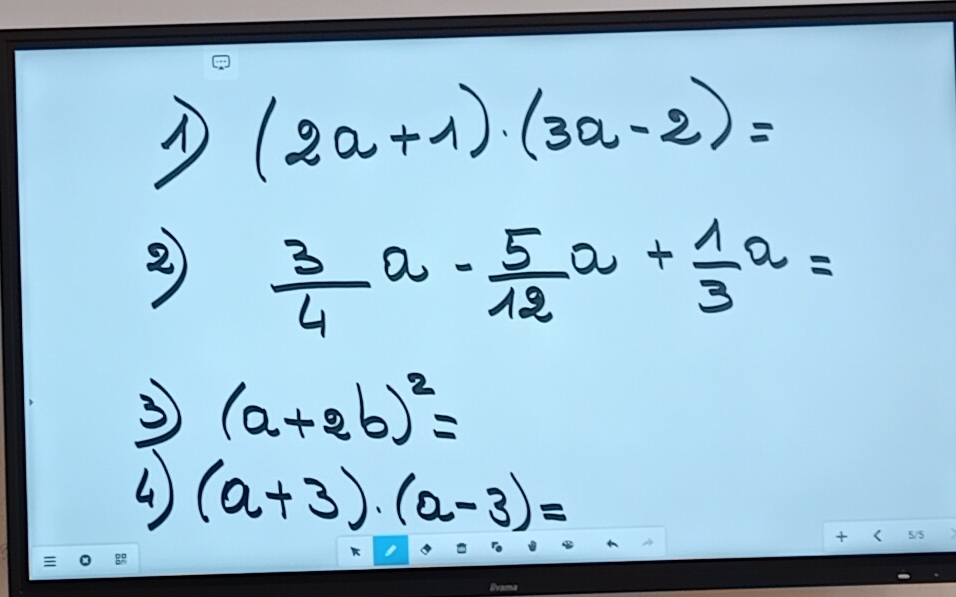 1) (2a+1)·(3a-2)=
2) 3/4 a - 5/12 a + 1/3 a =
3) (a+2b)²=
4) (a+3)·(a-3)=
5/5
iiyama